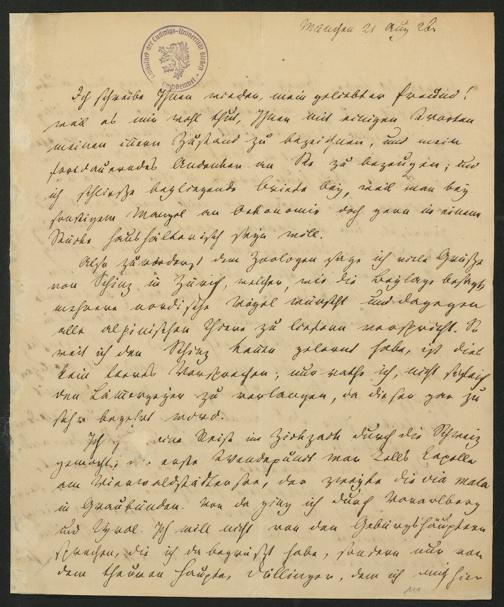 München 21 Aug 22.
Ich schreibe Ihnen wieder, mein geliebter Freund!
weil es mir wohl thut, Ihnen mit einigen Worten
meinen innern Zustand zu bezeichnen, und mein
fortdauerndes Andenken an Sie zu bezeugen; und
ich schließe beyliegende Briefe bey, weil man bey
sonstigem Mangel an Oekonomie doch gern in einem
Stücke haushälterisch seyn will.
Also zuvorderst dem Zoologen sage ich viele Grüße
von Schinz in Zürich, welcher, wie die Beylage besagt,
mehrere nordische Vögel wünscht und dagegen
alle alpinischen Thiere zu liefern verspricht. So
weit ich den Schinz kennen gelernt habe, ist dies
kein leeres Versprechen; nur rathe ich, nicht sogleich
den Lämmergeier zu verlangen, da dieser gar zu
sehr begehrt wird.
Ich eine Reise im Zickzack durch die Schweiz
gemacht; erste Wendepunct war Tells Capelle
am Vierwaldstättersee, der zweyte die via mala
in Graubünden. Von da ging ich durch Vorarlberg
und Tyrol. Ich will nicht von den Gebirgshäuptern
sprechen, die ich da begrüßt habe, sondern nur von
dem theuren Haupte, Döllinger, dem ich mich hier